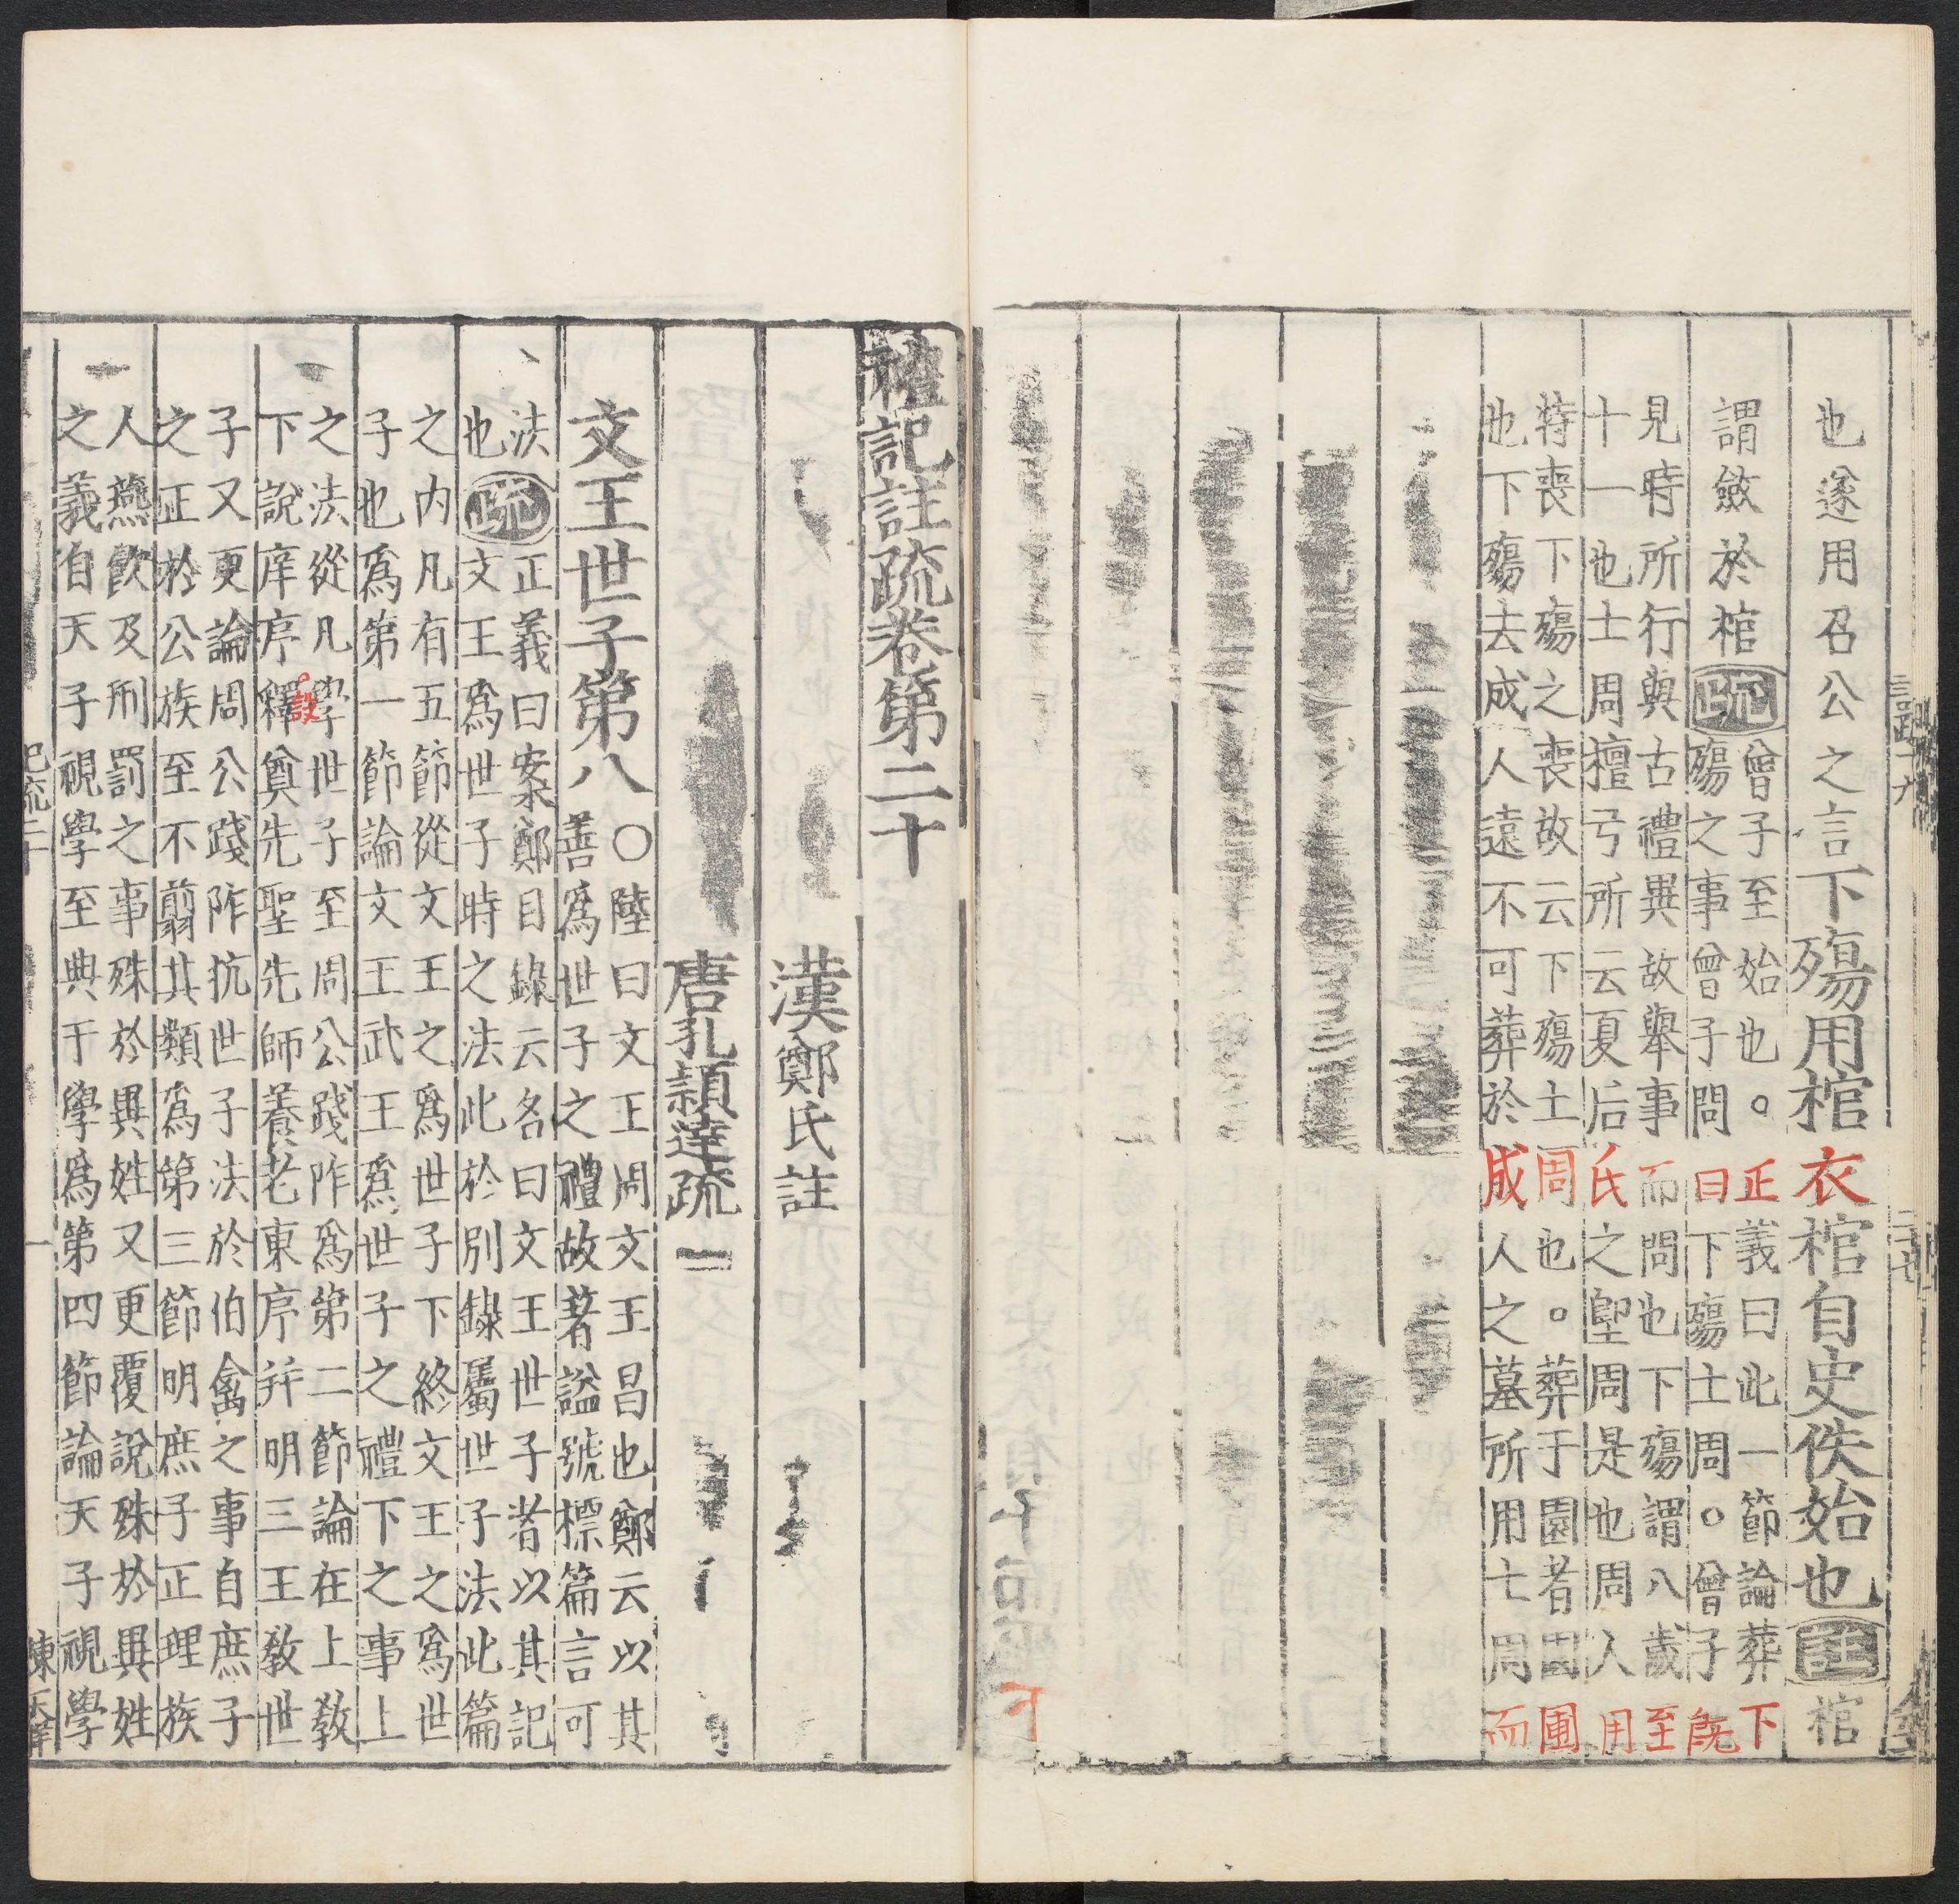 也遂用召公之言下殤用棺衣棺自史佚始也註棺
謂斂於棺疏曾子至始也。正義曰此一節論葬下
殤之事曾子問曰下殤土周。曾子既
見時所行與古禮異故舉事而問也下殤謂八歲至
十一也土周檀弓所云夏后氏之堲周是也周人用
特喪下殤之喪故云下殤土周也。葬于園者因園
也下殤去成人遠不可葬於成人之墓所用土周而
禮記註疏卷第二十
漢鄭氏註
唐孔穎達疏
文王世子第八○陸曰文王周文王昌也鄭云以其
善爲世子之禮故著謚號標篇言可
法疏正義曰案鄭目錄云名曰文王世子者以其記
也文王爲世子時之法此於別錄屬世子法此篇
之内凡有五節從文王之爲世子下終文王之爲世
子也爲第一節論文王武王爲世子之禮下之事上
之法從凡學世子至周公踐阼爲第二節論在上教
下說庠序釋奠先聖先師養老東序并明三王教世
設
子又更論周公踐阼抗世子法於伯禽之事自庶子
之正於公族至不翦其類爲第三節明庶子正理族
人燕飲及刑罰之事殊於異姓又更覆說殊於異姓
之義自天子視學至典于學爲第四節論天子視學